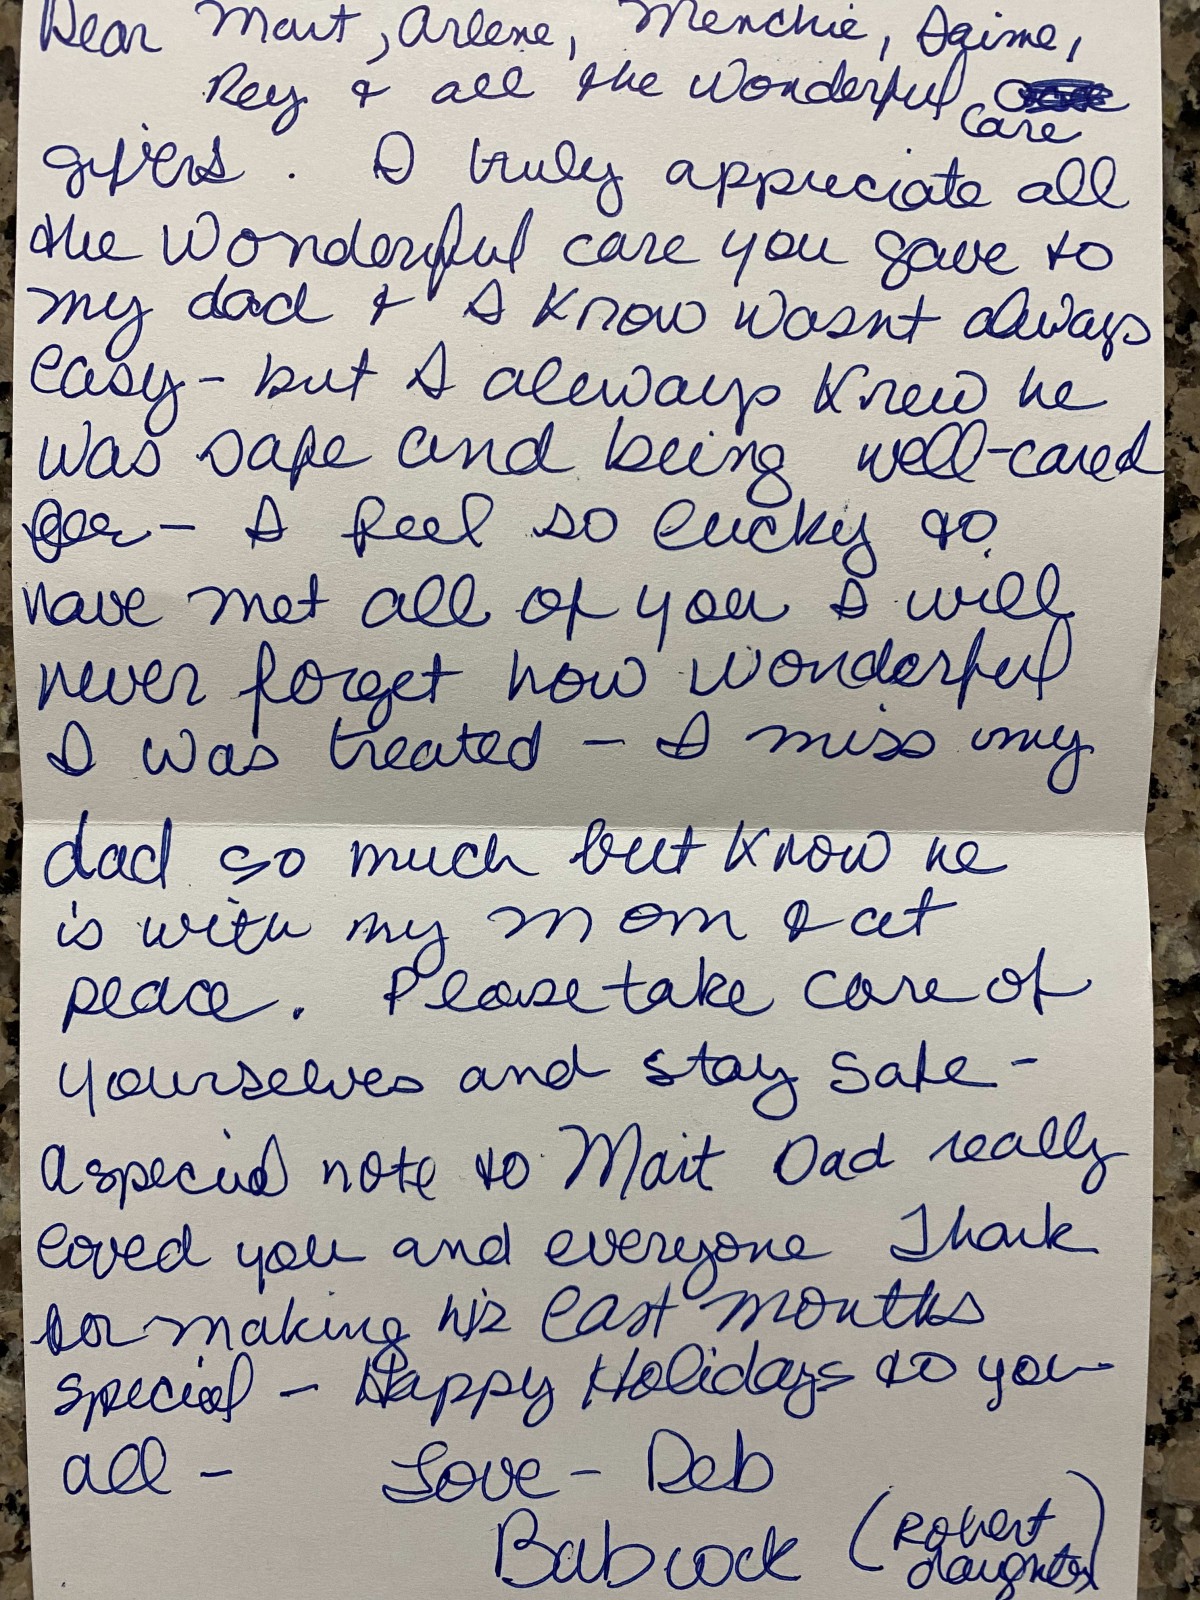 Dear Mait, Arlene, Menchie, Jaime,
Rey & all the wonderful
care
givers. I truly appreciate all
the wonderful care you gave to
my dad & I know wasnt always
easy - but I always knew he
was safe and being well-cared
for - I feel so lucky to
have met all of you I will
never forget how wonderful
I was treated - I miss my
dad so much but know he
is with my mom & at
peace. Please take care of
yourselves and stay safe -
A special note to Mait Dad really
loved you and everyone Thank
for making his last months
special - Happy Holidays to you
all - Love - Deb
Babcock (Robert
daughter)